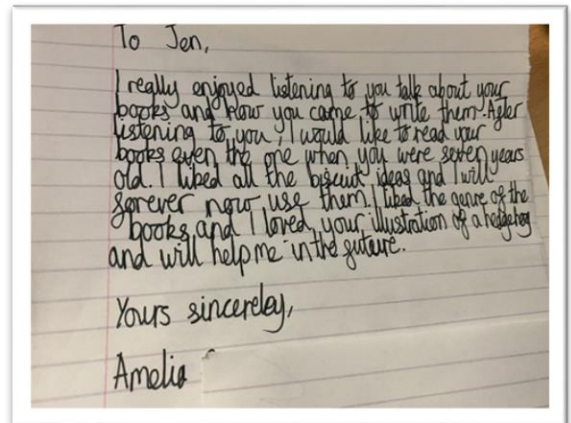 To Jen,
I really enjoyed listening to you talk about your
books and how you came to write them. After
listening to you, I would like to read your
books even the one when you were seven years
old. I liked all the biscuit ideas and I will
forever now use them. I liked the genre of the
books and I loved your illustration of a hedgehog
and will help me in the future.
Yours sincereley,
Amelia